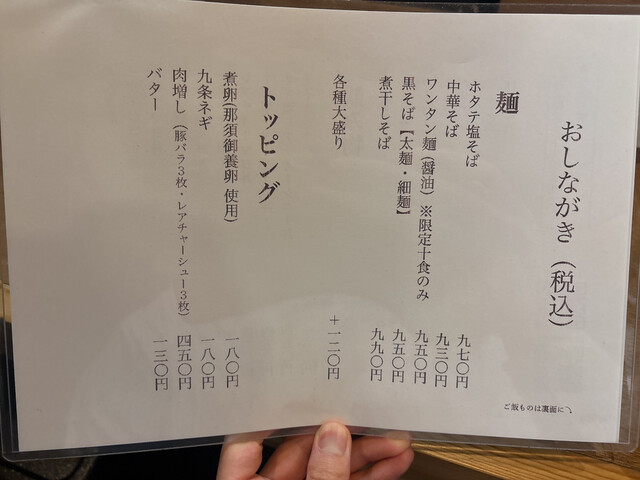 おしながき(税込)
麺
ホタテ塩そば 九七〇円
中華そば 九三〇円
ワンタン麺(醤油)※限定十食のみ 九五〇円
黒そば【太麺・細麺】 九五〇円
煮干しそば 九九〇円
各種大盛り +一二〇円
トッピング
煮卵(那須御養卵 使用) 一八〇円
九条ネギ 一八〇円
肉増し(豚バラ3枚・レアチャーシュー3枚) 四五〇円
バター 一三〇円
ご飯ものは裏面に⤵